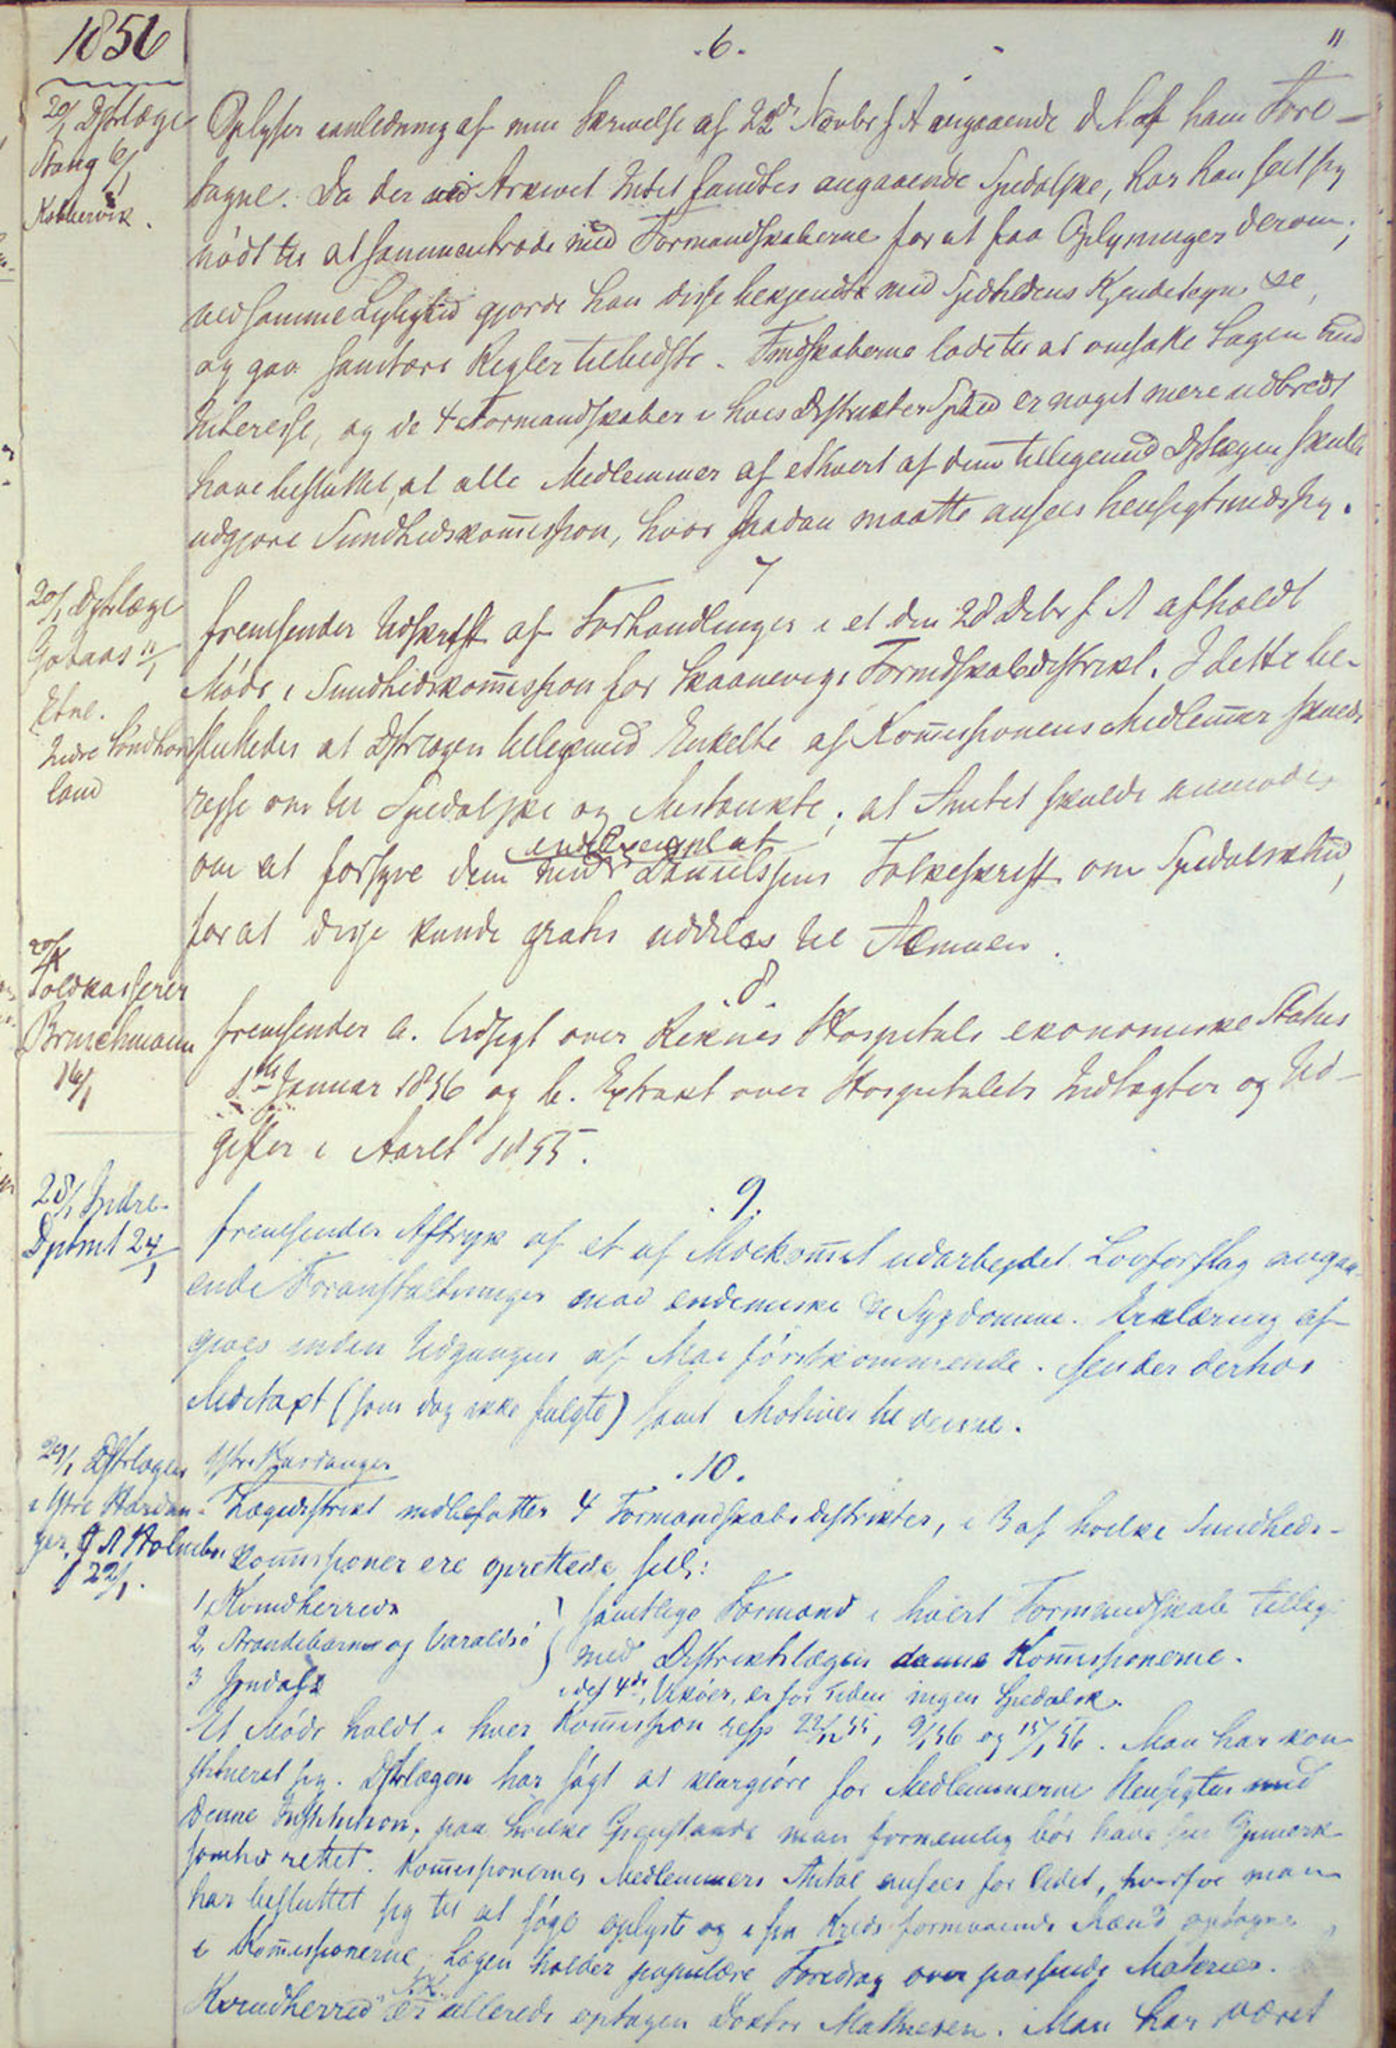 1856
.6.
11
20/1 Dstrlæge
Stang 6/1
Kobbervik.
Oplyser i anledning af min Skrivelse af 22de Novbr f A angaaende d A af ham Fore-
tagne. Da der ved Arkivet Intet fandtes angaaende Spedalske, har han seet sig
nödt til at sammentræde med Formandskaberne for at faa Oplysninger derom;
ved samme Leilighed gjorde han disse bekjendte med Sygdommens Kjendetegn &c,
og gav sanitære Regler tilbedste. Fmdskaberne lode til at omfatte Sagen med
Interesse, og de 4 Formandskaber i hvis Distrikter Spedh er noget mere udbredt
have besluttet, at alle Medlemmer af ethvert af dem tilligemed Dstlægen skulle
udgjøre Sundhedskom̅ission, hvor saadan maatte ansees hensigtsmæssig.
7
20/1 Dstrlæge
Gobaas 11/1
Etne.
Indre Söndhord
land
fremsender Udskrift af Forhandlinger i et den 28 Debr f A afholdt
Möde i Sundhedskom̅ission for Skaanevigs Formdskabsdistrikt. I dette be-
sluttedes at Dstrlægen tilligemed Enkelte af Kom̅issionens Medlem̅er skulde
rejse om til Spedalske og Mistænkte; at Amtet skulde anmodes
om at forsyne dem med endel Exemplar af Danielssens Folkeskrift om Spedalskhed,
for at disse kunde gratis uddeles til Almuen.
.8.
20/1
Toldkasserer
Brinchmann
16/1
fremsender a. Udsigt over Reknes Hospitals ekonomiske Status
1ste Januar 1856 og b. Extrakt over Hospitalets Indtægter og Ud-
gifter i Aaret 1855.
.9.
28/1 Indre-
Dptmt 24/1
fremsender Aftryk af et af Medkom̅ udarbeydet Lovforslag angaa-
ende Foranstaltninger mod endemiske &c Sygdomme. Erklæring af-
gives inden Udgangen af Mai förstkommende. Sender derhos
Medtaxt (som dog ikke fulgte) samt Motiver til denne.
.10.
29/1 Dstrlægen
i Ytre Hardan-
ger, J A Holmboe
22/1.
Ytre Hardanger
Lægedistrikt indbefatter 4 Formandskabsdistrikter, i 3 af hvilke Sundheds-
kom̅issioner ere oprettede, sel:
1, Kvindherreds
2, Strandebarms og Varaldsö
3 Jondals
samtlige Formænd i hvert Formandskab tillige
med Distriktslægen danne Kom̅issionerne.
i det 4de, Vikör, er for Tiden ingen Spedalsk.
Et Möde holdt i hver Kom̅ission resp 22/12 55, 9/1 56 og 15/1 56. Man har kon-
stitueret sig. Dstrlægen har sögt at klargjöre for Medlemmerne Hensigten med
denne Institution, paa hvilke Gjenstande man fornemlig bör have sin Opmærk-
somhed rettet. Kom̅issionernes Medlemmers Antal ansees for lidet, hvorfor man
har besluttet sig til at söge oplyste og i sin Kreds formaaende Mænd optagne
i Kom̅issionerne. Lægen holder populære Foredrag over passende Materier.
Kvindherred's KK. er allerede optagen Doktor Mathiesen. Man har været